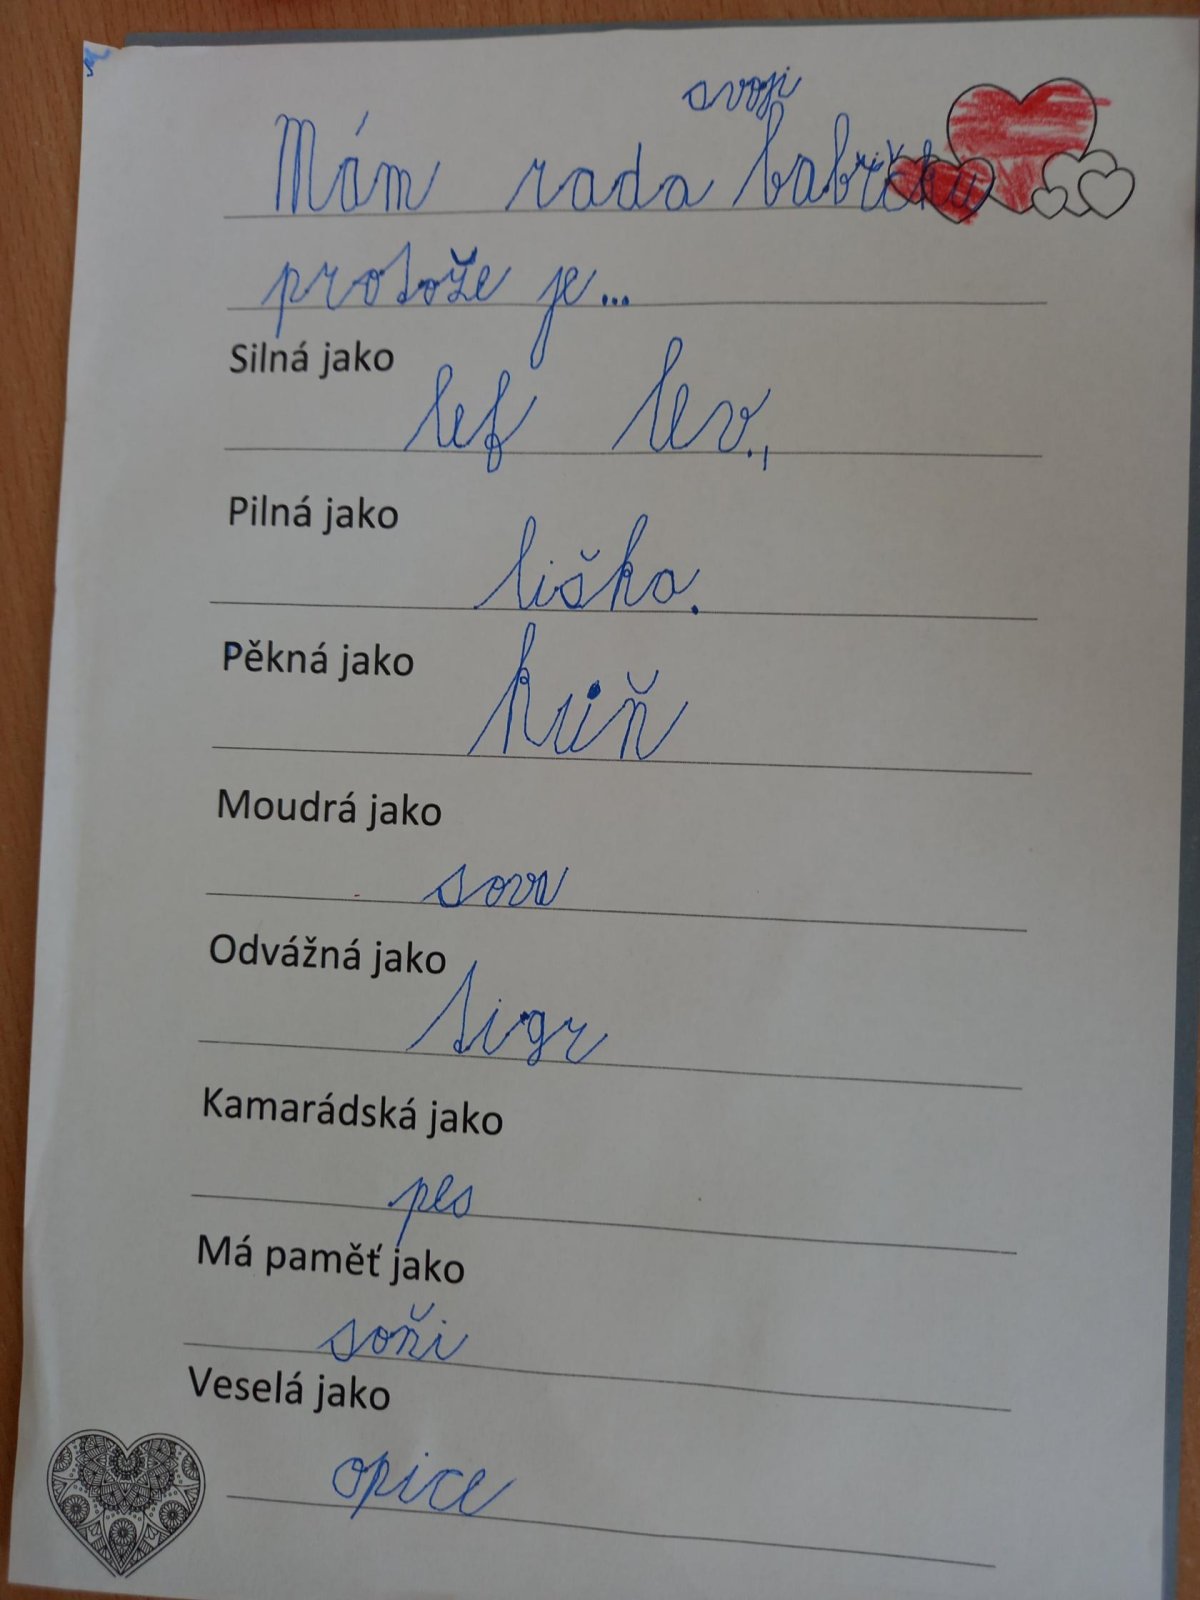 svoji
Mám rada babičku
protože je...
Silná jako
lef lev.,
Pilná jako
liška.
Pěkná jako
kůň
Moudrá jako
sova
Odvážná jako
tigr
Kamarádská jako
pes
Má paměť jako
soňi
Veselá jako
opice